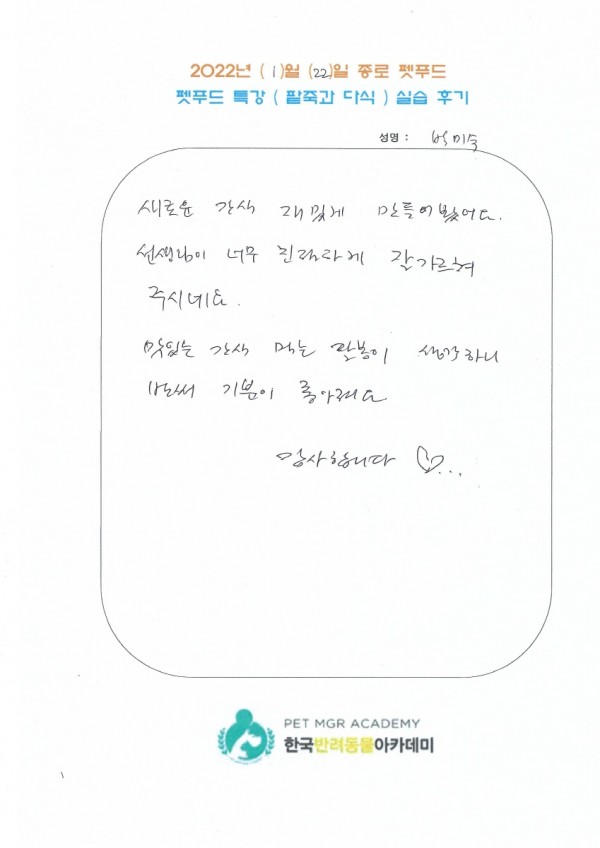 2022년 ( 1 )월 (22)일 종로 펫푸드
펫푸드 특강 ( 팥죽과 다식 ) 실습 후기
성명 : 박미숙
새로운 간식 재밌게 만들어봤어요.
선생님이 너무 친절하게 잘 가르쳐
주시네요.
맛있는 간식 먹는 봉이 생각하니
벌써 기분이 좋아져요
감사합니다 ♡...
PET MGR ACADEMY
한국반려동물아카데미